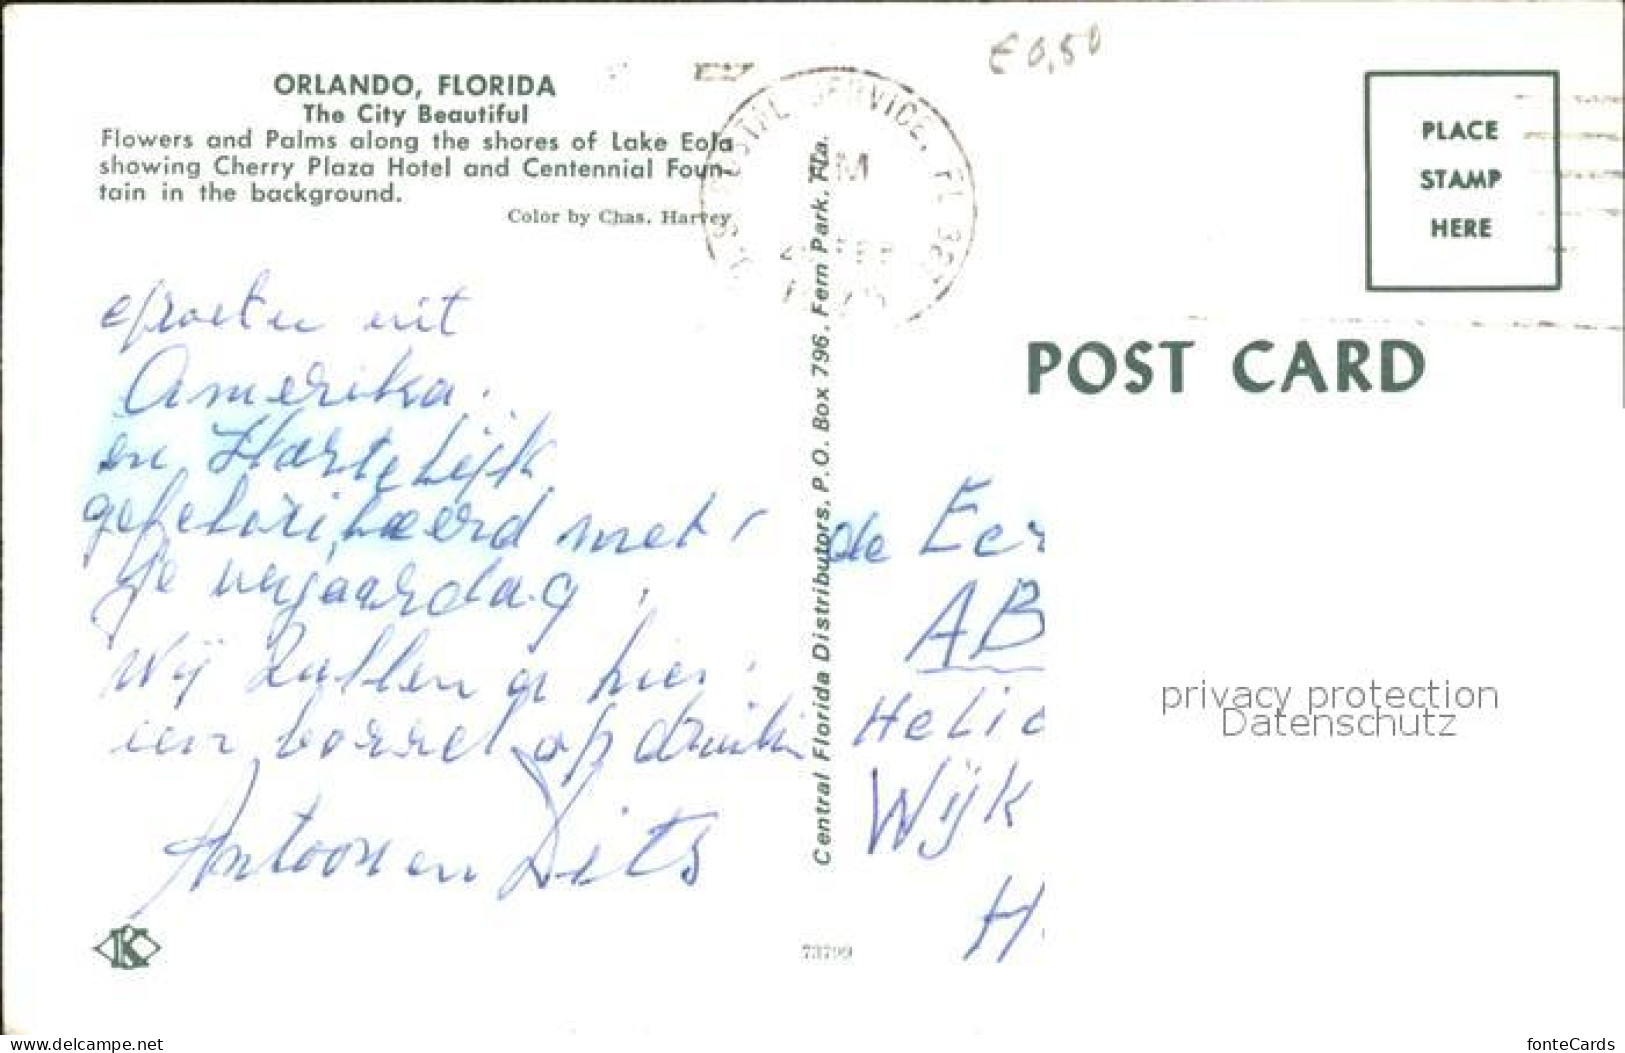 € 0,50
ORLANDO, FLORIDA
The City Beautiful
Flowers and Palms along the shores of Lake Eola
showing Cherry Plaza Hotel and Centennial Foun-
tain in the background.
Color by Chas. Harvey
POSTAL SERVICE, FL
PLACE
STAMP
HERE
POST CARD
groeten uit
Amerika.
en Hartelijk
gefeliciteerd met
je verjaardag
Wij zullen er hier
een borrel op drinken
Antoon en Diets
Central Florida Distributors, P.O. Box 796, Fern Park, Fla.
de
AB
Helic
Wijk
H.
privacy protection
Datenschutz
K
73799
www.delcampe.net
fonteCards